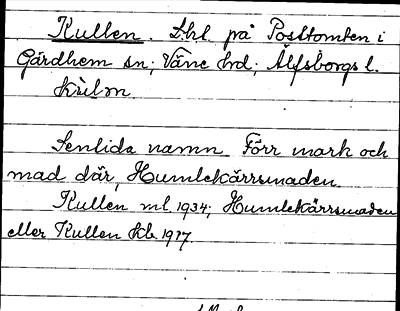 Kullen. Lhl. på Posttomten i
Gärdhem sn; Väne hd; Älfsborgs l.
Senlida namn. Förr mark och
mad där, Humlekärrsmaden.
Kullen ml. 1934; Humlekärrsmaden
eller Kullen kb. 1917.